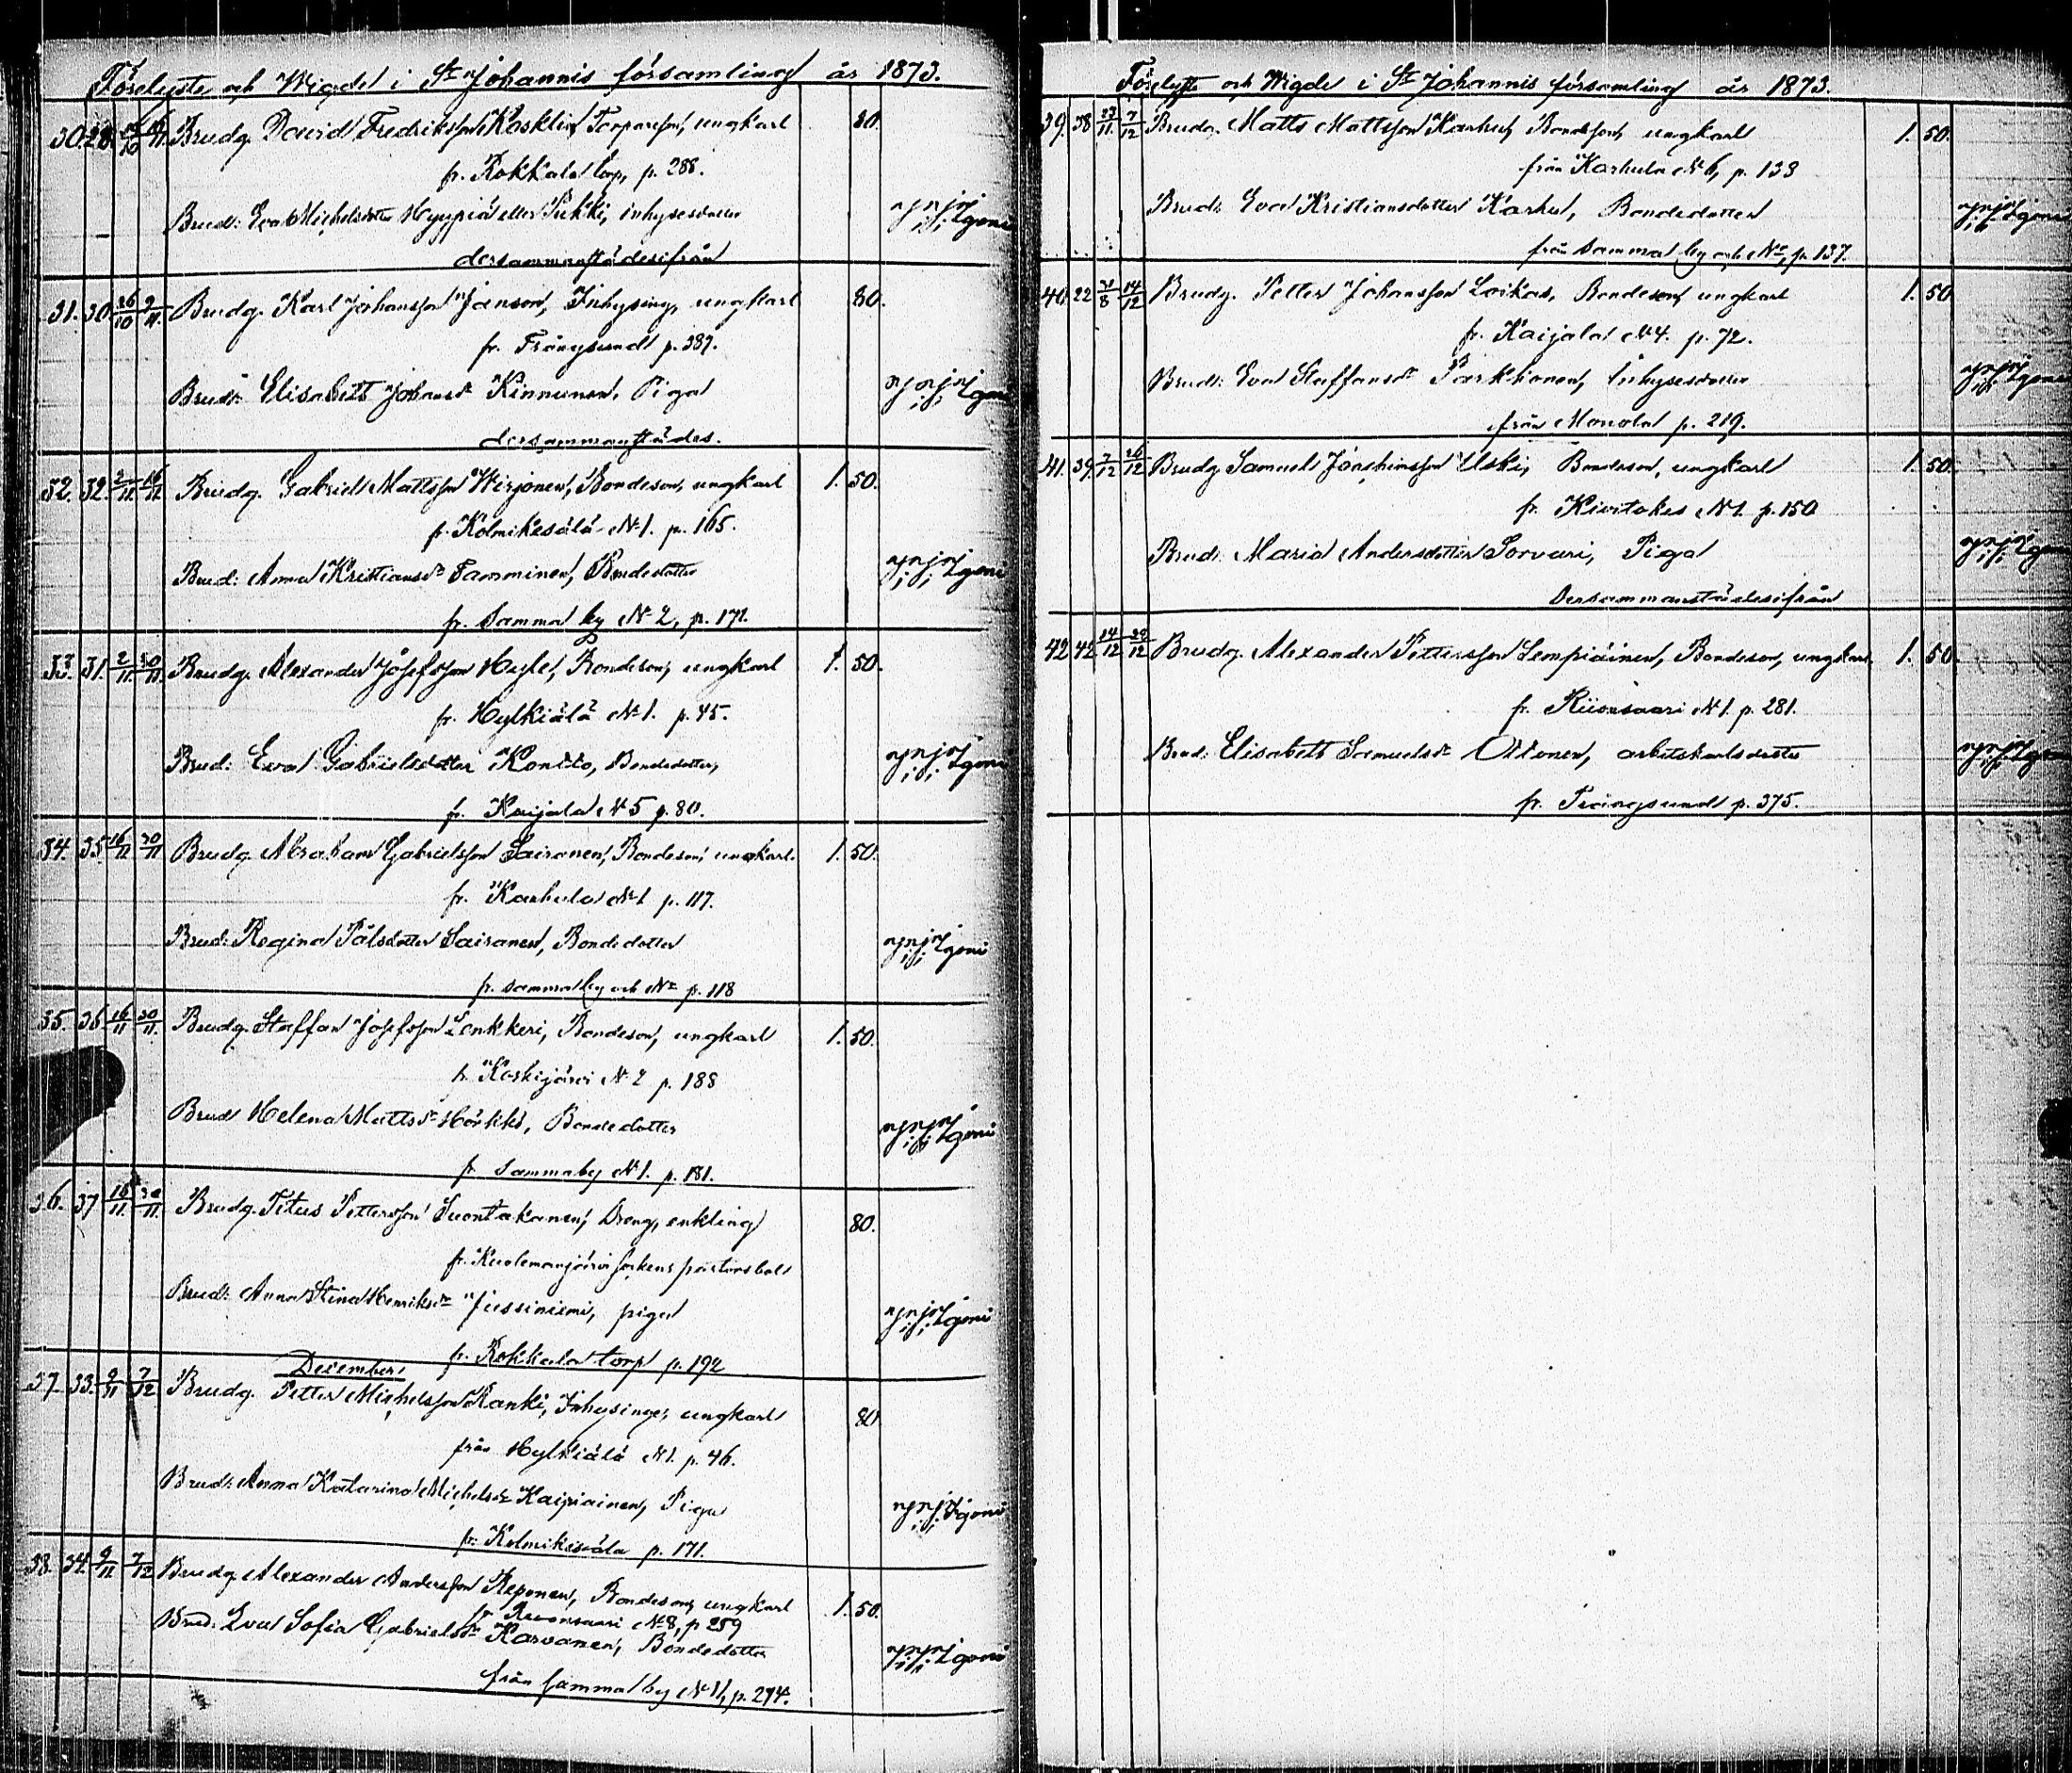 Förelyste och Wigde i St Johannis församling år 1873.
30. 28. 19/10 Brudg. David Fredriksson Kosklin Torpareson, ungkarl 80.
fr. Rokkala torp, p. 288.
Brud: Eva Michelsdotter Hyypiä eller Pukki, inhysesdotter
dersammastädesifrån
31. 30. 26/10 9/11. Brudg. Karl Johansson Janson, Inhysing, ungkarl 80.
fr. Trångsund p. 389.
Brud: Elisabeth Johansdr Kinnunen, Piga
dersammastädes.
32. 32. 2/11. 16/11. Brudg. Gabriel Mattsson Wirjonen, Bondeson, ungkarl 1. 50.
fr. Kolmikesälä N:1. p. 165.
Brud: Anna Kristiansdr Tamminen, Bondedotter
fr. samma by N 2, p. 171.
33. 31. 2/11. 30/11. Brudg. Alexander Josefsson Hyle, Bondeson, ungkarl 1. 50.
fr. Hylkiälä N:1. p. 45.
Brud: Eva Gabrielsdotter Kontto, Bondedotter,
fr. Kaijala N:5 p. 80.
34. 35. 16/11 30/11 Brudg. Abraham Gabrielsson Sairanen, Bondeson, ungkarl. 1. 50.
fr. Karhula N:1 p. 117.
Brud: Regina Pålsdotter Sairanen, Bondedotter
fr. samma by och No p. 118
35. 36 16/11 30/11. Brudg. Staffan Josefsson Lenkkeri, Bondeson, ungkarl 1. 50.
fr. Koskijärvi N:2 p. 188
Brud Helena Mattsdr Hörkkö, Bondedotter
fr samma by N 1. p. 181.
36. 37 16/11. 30/11. Brudg. Titus Pettersson Suontakanen, Dreng, enkling 80.
fr. Kuolemajärvi sockens pastorsbol
Brud: Anna Stina Henriksdr Jussiniemi, piga
fr. Rokkala torp p. 192
December.
37. 33. 9/11 7/12 Brudg. Petter Michelsson Ranki, Inhysinge, ungkarl 80
från Hylkiälä N 1. p. 46.
Brud: Anna Katarina Michelsdr Kaipiainen, Piga
fr. Kolmikesälä p. 171.
38. 34. 9/11 7/12 Brudg. Alexander Andersson Reponen, Bondeson, ungkarl 1. 50.
fr Revonsaari N:8, p 259
Brud: Eva Sofia Gabrielsdr Karvanen, Bondedotter
från samma by N 11, p. 294.
Förelyste och Wigde i St Johannis församling år 1873.
39. 38 23/11. 7/12 Brudg. Matts Mattsson Karhu, Bondeson, ungkarl 1. 50.
från Karhula N:6, p. 138
Brud: Eva Kristiansdotter Karhu, Bondedotter
från samma by och No, p. 137.
40. 22 14/12 Brudg. Petter Johansson Loikas, Bondeson, ungkarl 1. 50
fr. Kaijala N 4. p. 72.
Brud: Eva Staffansdr Parkkonen, Inhysesdotter
från Monola p. 219.
41. 39. 7/12 26/12 Brudg. Samuel Joachimsson Uski, Bondeson, ungkarl 1. 50.
fr. Kiritokes N 1. p. 150
Brud: Maria Andersdotter Sorvari, Piga
Dersammastädesifrån
42 42 14/12 Brudg. Alexander Pettersson Lempiäinen, Bondeson, ungkarl 1. 50.
fr. Revonsaari N 1. p. 281.
Brud: Elisabeth Samuelsdr Ottonen, arbetskarlsdotter
fr. Trångsund p. 375.